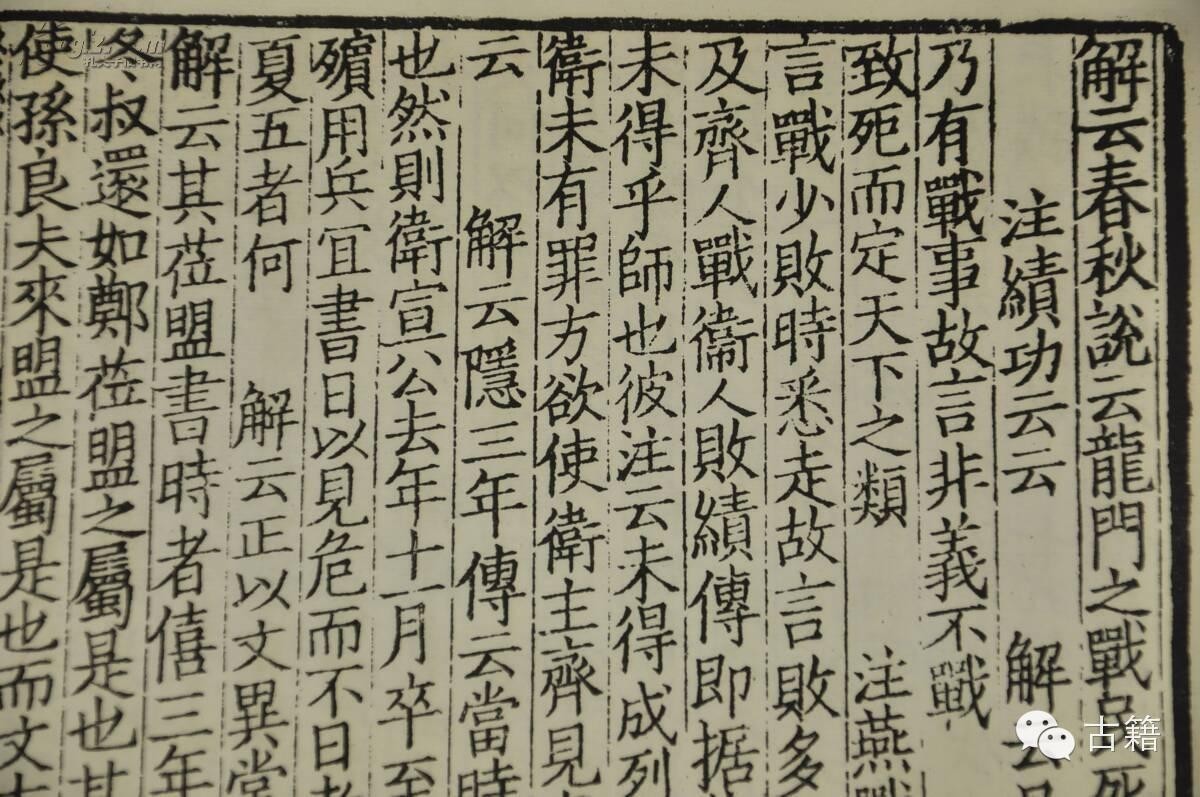 解云春秋說云龍門之戰
注績功云云　解云
乃有戰事故言非義不戰
致死而定天下之類　注燕戰
言戰少敗時悉走故言敗多
及齊人戰衛人敗績傳即据
未得乎師也彼注云未得成列
衛未有罪方欲使衛主齊見
云　解云隱三年傳云當時
也然則衛宣公去年十一月卒至
殯用兵冝書日以見危而不日者
夏五者何　解云正以文異常
解云其莅盟書時者僖三年
冬叔還如鄭莅盟之屬是也其
使孫良夫來盟之屬是也而文
古籍